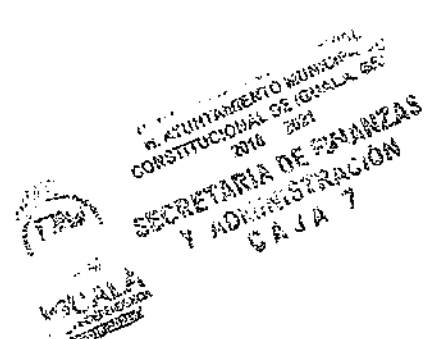 H. AYUNTAMIENTO MUNICIPAL
CONSTITUCIONAL DE IGUALA GRO
2018 2021
SECRETARIA DE FINANZAS
Y ADMINISTRACIÓN
CAJA 7
IGUALA